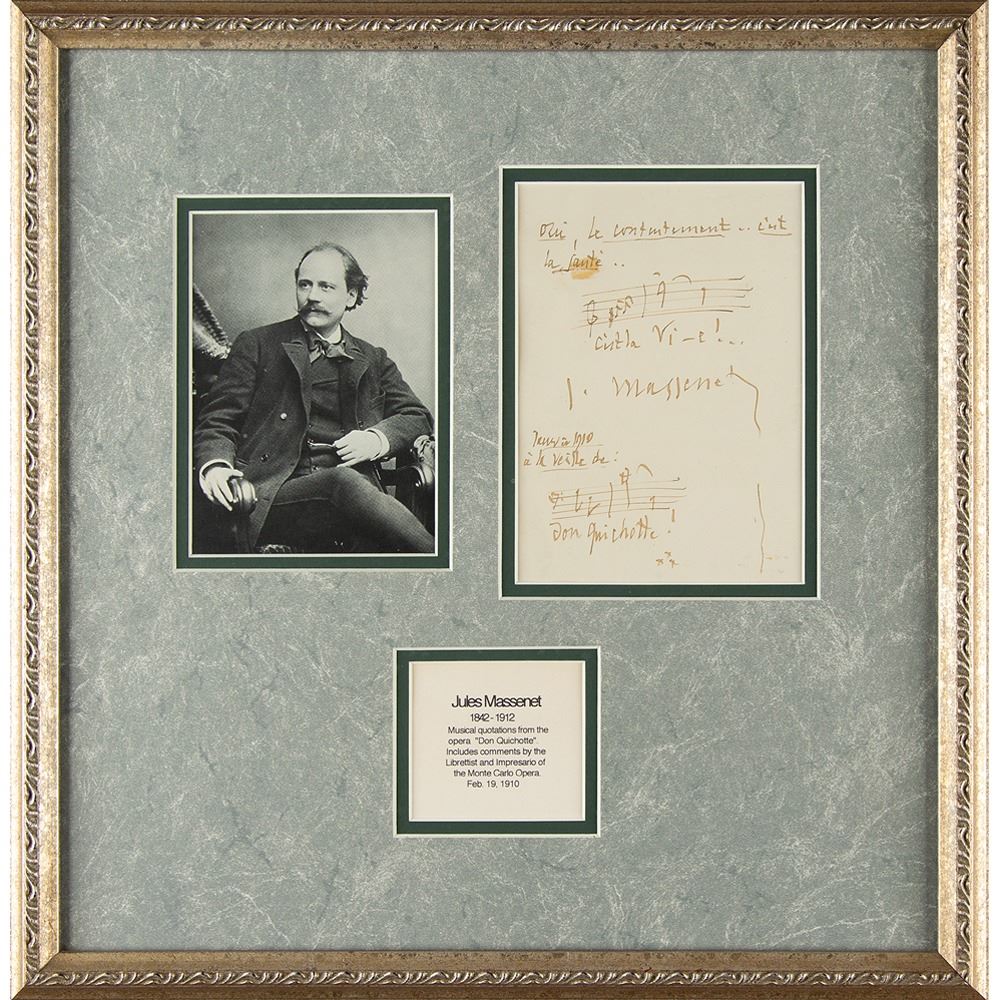 Oui, le contentement .. c'est
la santé ..
c'est la Vi-e! ...
J. Massenet
Janvier 1910
à la veille de :
Don Quichotte!
Jules Massenet
1842 - 1912
Musical quotations from the
opera "Don Quichotte".
Includes comments by the
Librettist and Impresario of
the Monte Carlo Opera.
Feb. 19, 1910